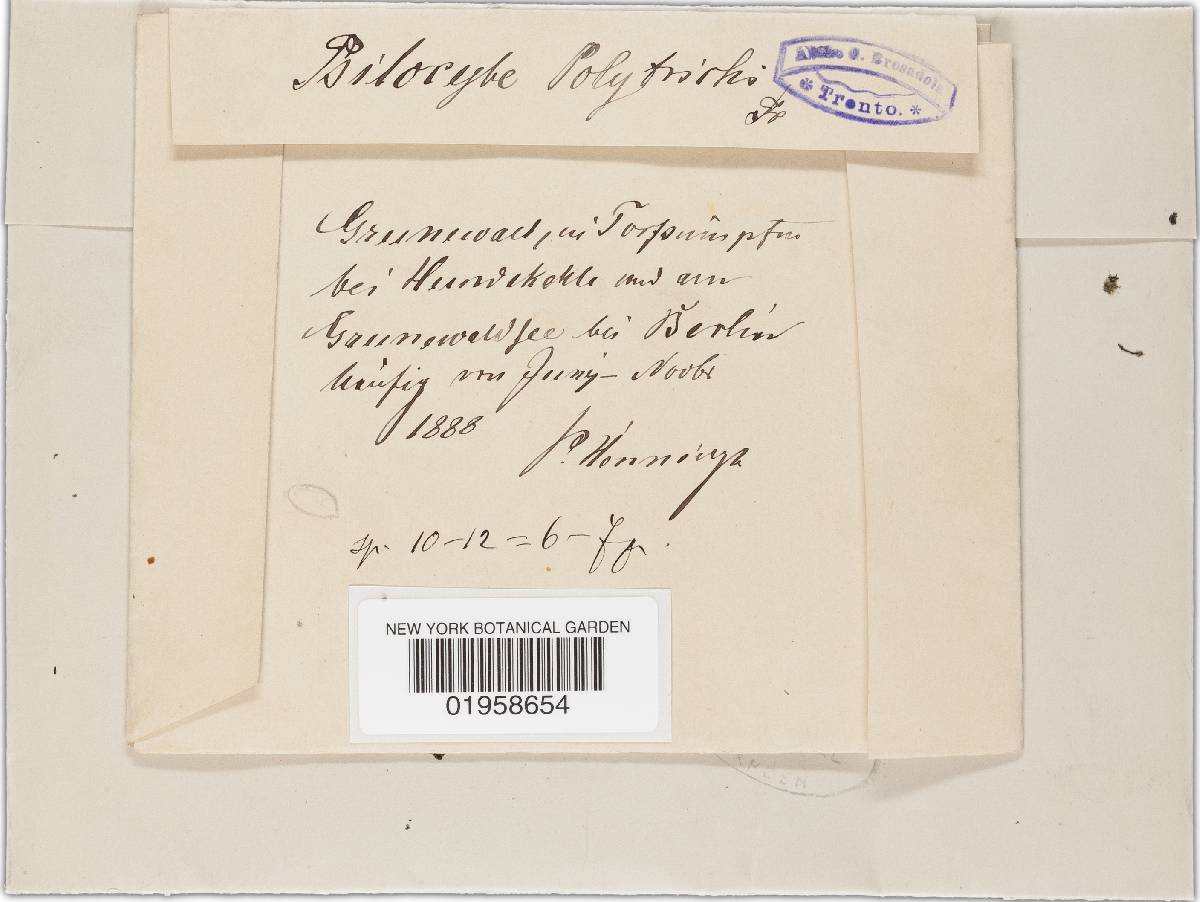 Psilocybe Polytrichi
Fr
G. Bresadola
* Trento. *
Grunewald, in Torfsümpfen
bei Hundekehle und am
Grunewaldsee bei Berlin
häufig von Juni – Novbr
1888
P. Hennings
sp. 10–12 = 6–7 μ.
NEW YORK BOTANICAL GARDEN
01958654